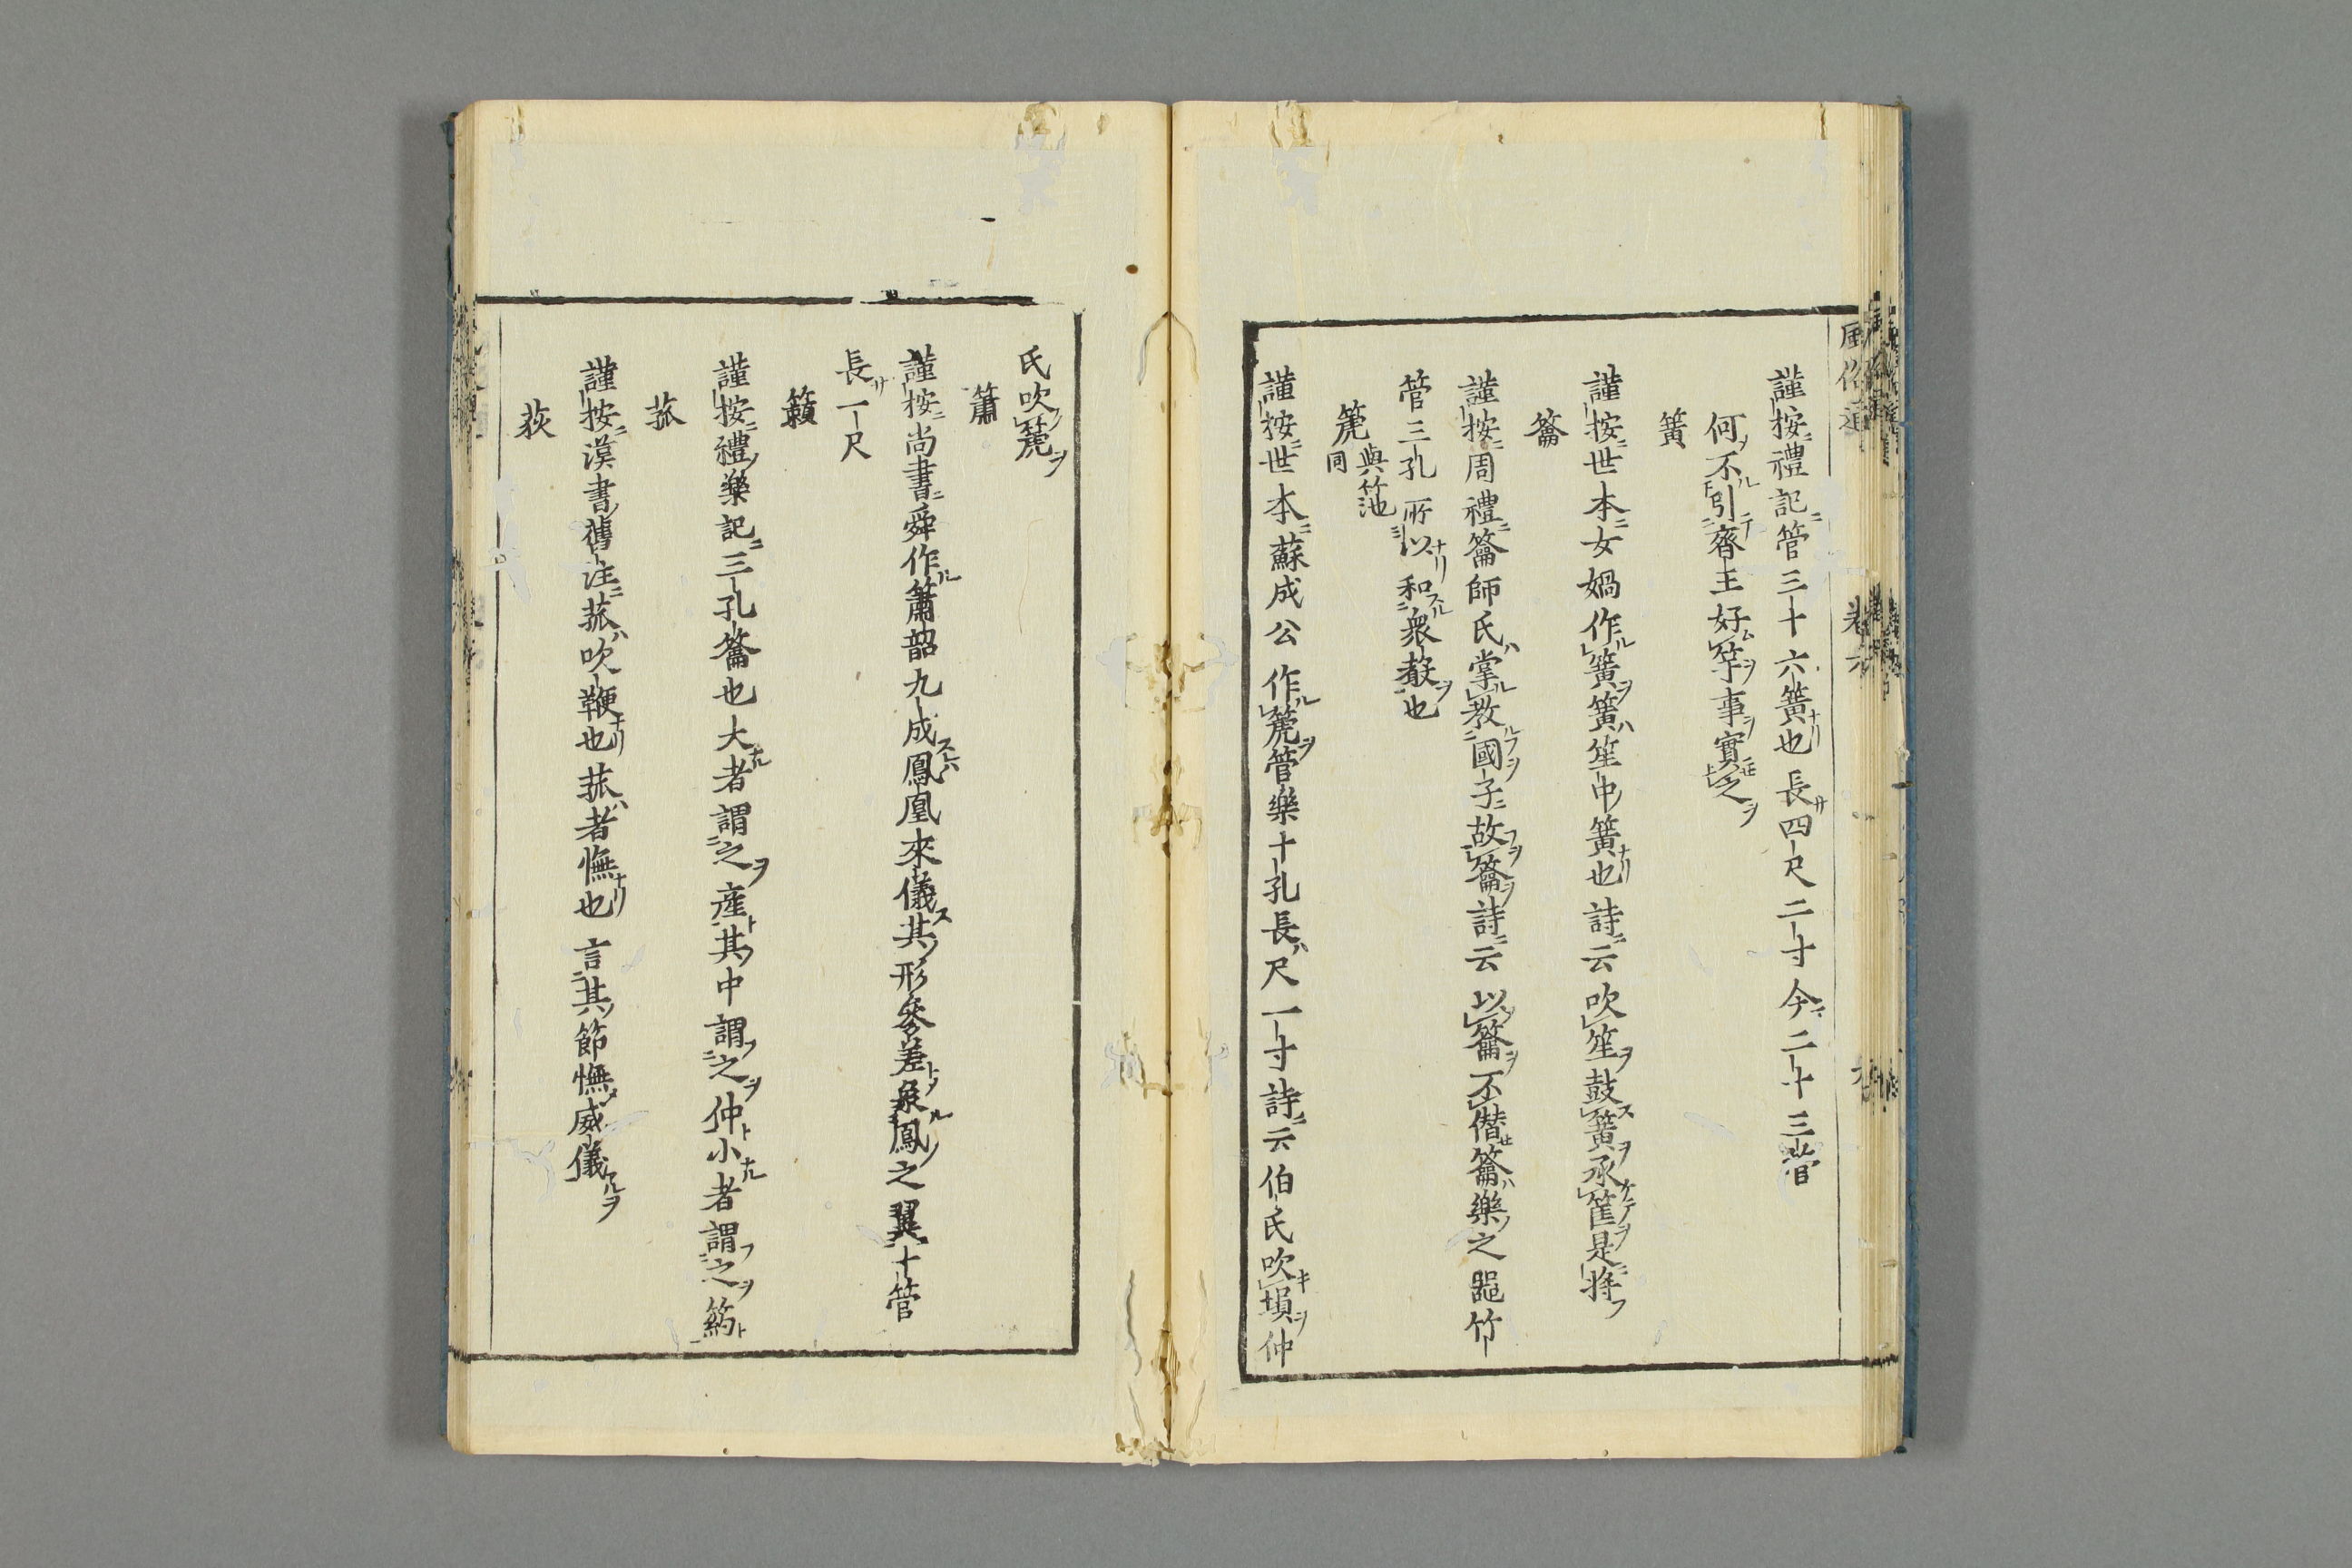 謹按禮記管三十六簧也長四尺二寸今二十三管
何不引齊王好竽事實之
簧
謹按世本女媧作簧簧笙中簧也詩云吹笙鼓簧承筐是將
籥
謹按周禮籥師氏掌教國子故籥詩云以籥不僭籥樂之噐竹
管三孔所以和衆聲也
箎與竾同
謹按世本蘇成公作箎管樂十孔長尺一寸詩云伯氏吹塤仲
氏吹箎
簫
謹按尚書舜作簫韶九成鳳凰來儀其形參差象鳳之翼十管
長一尺
籟
謹按禮樂記三孔籥也大者謂之産其中謂之仲小者謂之箹
菰
謹按漢書舊注菰吹鞭也菰者憮也言其節憮威儀
荻